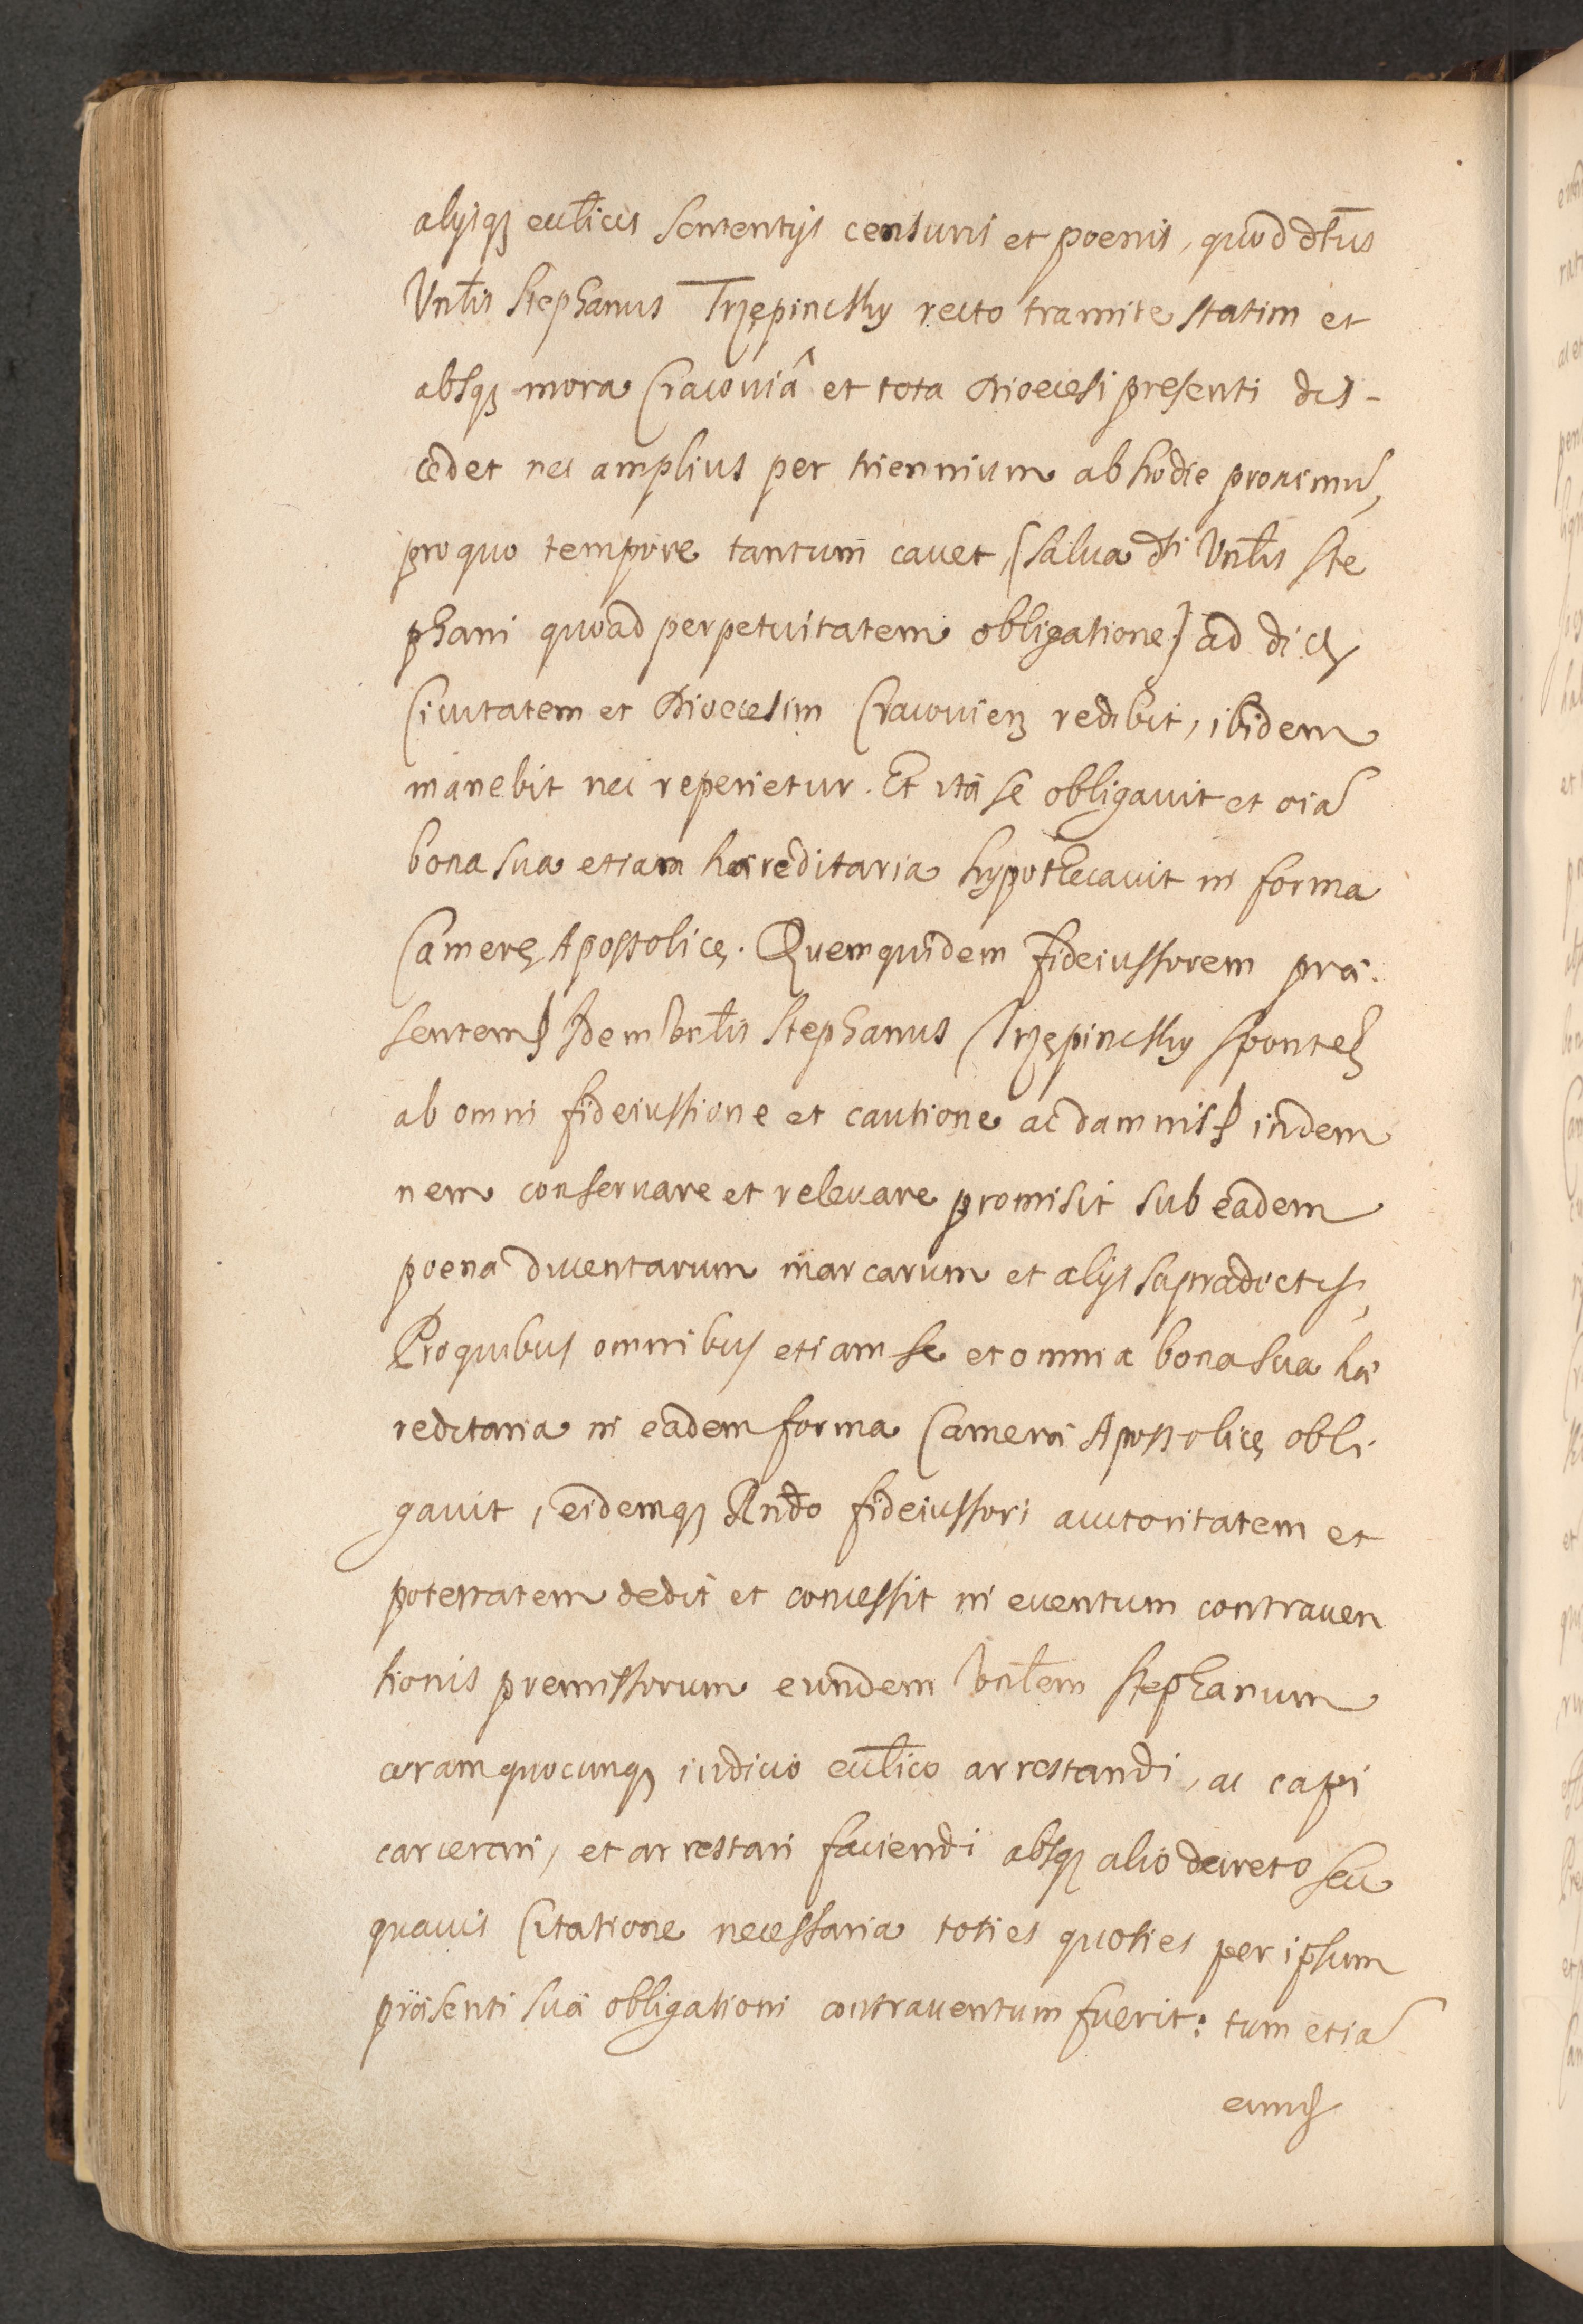 alysq₃ ecclīcis sententys censuris et poenis, quod dt̄us
Vnlīs Stephanus Trzępinckhy recto tramite statim et
absq₃ mora Cracouiâ et tota Dioecesi presenti dis-
cedet nec amplius per triennium ab hodie proximū,
pro quo tempore tantum cauet, [salua dti Vnlīs Ste
phani quoad perpetuitatem obligatione] ad dictā
Ciuitatem et Dioecesim Cracouien₃ redibit, ibidem
manebit nec reperietur. Et ità se obligauit et oiā
bona sua etiam hæreditaria hypothecauit in forma
Camerę Apostolicę. Quem quidem fideiussorem præ-
sentem Idem Vnlīs Stephanus Trzępinckhy sponte
ab omni fideiussione et cautione ac damnis indem
nem conseruare et releuare promisit sub eadem
poena ducentarum marcarum et alijs supradictis,
Pro quibus omnibus etiam se et omnia bona sua hæ
reditaria in eadem forma Cameræ Apostolicę obli
gauit, eidemq₃ Rndo fideiussori auctoritatem et
potestatem dedit et concessit in euentum contrauen
tionis premissorum eundem Vnlēm Stephanum
coram quocunq₃ iudicio ecclīco arrestandi, ac capi
carcerari, et arrestari faciendi absq₃ alio decreto seu
quauis Citatione necessaria toties quoties per ipsum
præsenti suæ obligationi contrauentum fuerit: tum etiā